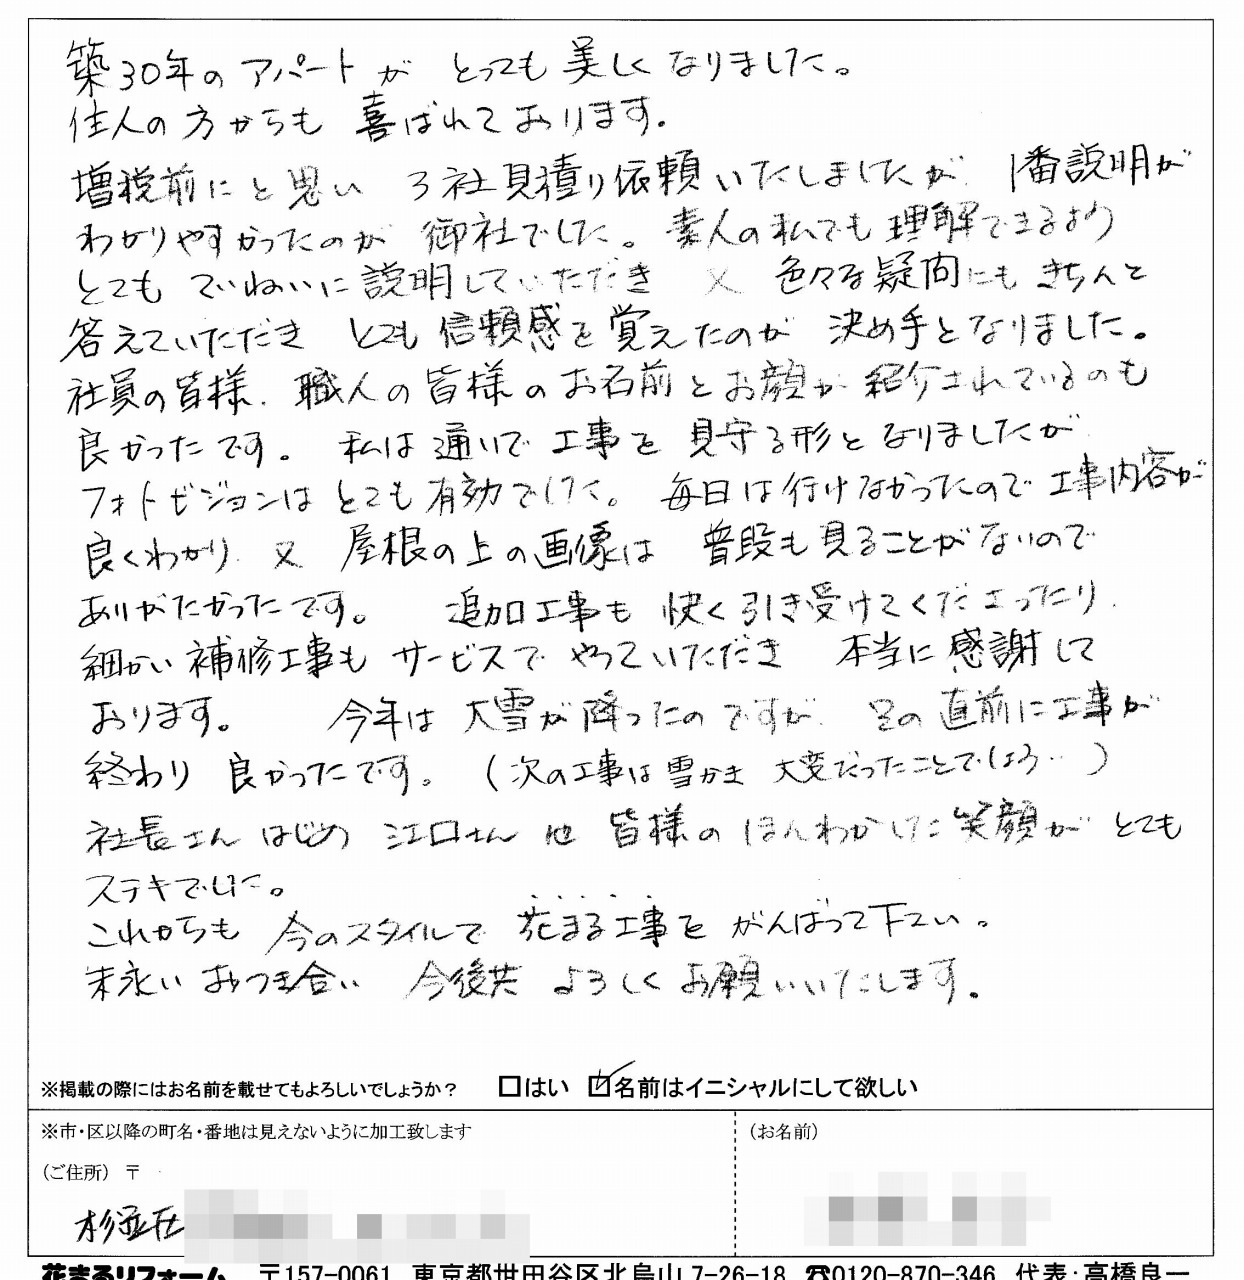 築30年のアパートが とっても美しくなりました。
住人の方からも 喜ばれております。
増税前にと思い 3社見積り依頼いたしましたが、1番説明が
わかりやすかったのが 御社でした。素人の私でも理解できるよう
とても ていねいに説明していただき 又 色々な疑問にも きちんと
答えていただき とても信頼感を覚えたのが 決め手となりました。
社員の皆様、職人の皆様のお名前とお顔が紹介されているのも
良かったです。 私は通いで工事を見守る形となりましたが
フォトビジョンは とても有効でした。毎日は行けなかったので工事内容が
良くわかり、又 屋根の上の画像は 普段も見ることがないので
ありがたかったです。 追加工事も 快く引き受けてくださったり、
細かい補修工事も サービスで やっていただき 本当に感謝して
おります。 今年は大雪が降ったのですが、その直前に工事が
終わり 良かったです。(次の工事は雪かき 大変だったことでしょう‥)
社長さん はじめ 江口さん 他 皆様の ほんわかした笑顔が とても
ステキでした。
これからも 今のスタイルで 花まる工事を がんばって下さい。
末永い おつき合い 今後共 よろしくお願いいたします。
※掲載の際にはお名前を載せてもよろしいでしょうか？ □はい ☑名前はイニシャルにして欲しい
※市・区以降の町名・番地は見えないように加工致します
（お名前）
（ご住所）〒
杉並区
花まるリフォーム 〒157-0061 東京都世田谷区北烏山7-26-18 ☎0120-870-346 代表：高橋良一